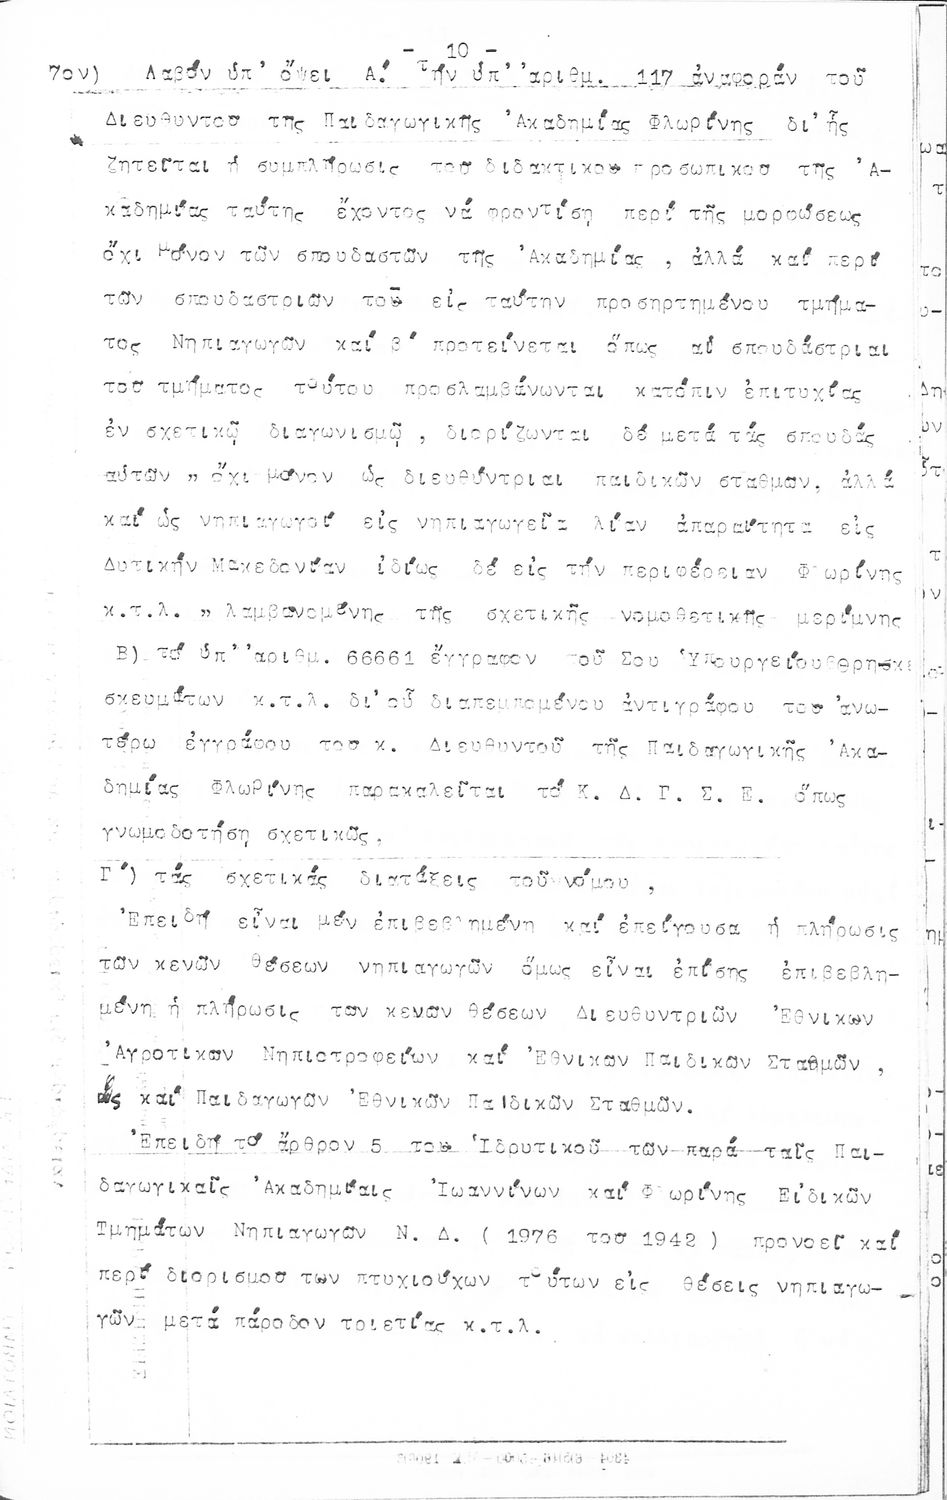 - 10 -
7ον) Λαβόν ὑπ' ὄψει Α! τήν ὑπ' 'αριθμ. 117 ἀναφοράν τοῦ
Διευθυντου της Παιδαγωγικῆς 'Ακαδημίας Φλωρίνης δι' ἧς
ζητεῖται ἡ συμπλήρωσις του διδακτικου προσωπικου τῆς 'Α-
καδημίας ταύτης ἔχοντος νά φροντίση περί τῆς μορφώσεως
ὄχι μόνον τῶν σπουδαστῶν τῆς 'Ακαδημίας , ἀλλά καί περί
τῶν σπουδαστριῶν τοῦ εἰς ταύτην προσηρτημένου τμήμα-
τος Νηπιαγωγῶν καί β' προτείνεται ὅπως αἱ σπουδάστριαι
του τμήματος τούτου προσλαμβάνωνται κατόπιν ἐπιτυχίας
ἐν σχετικῷ διαγωνισμῷ , διορίζωνται δέ μετά τάς σπουδάς
αὑτῶν " ὄχι μόνον ὡς διευθύντριαι παιδικῶν σταθμων, ἀλλά
καί ὡς νηπιαγωγοί εἰς νηπιαγωγεῖα λίαν ἀπαραίτητα εἰς
Δυτικήν Μακεδονίαν ἰδίως δέ εἰς τήν περιφέρειαν Φ ωρίνης
κ.τ.λ. " λαμβανομένης τῆς σχετικῆς νομοθετικῆς μερίμνης
Β) τό ὑπ' 'αριθμ. 66661 ἔγγραφον τοῦ Σου Ὑπουργείου Θρησκε
σκευμάτων κ.τ.λ. δι' οὗ διαπεμπομένου ἀντιγράφου του 'ανω-
τέρω ἐγγράφου του κ. Διευθυντοῦ τῆς Παιδαγωγικῆς 'Ακα-
δημίας Φλωρίνης παρακαλεῖται τό Κ. Δ. Γ. Σ. Ε. ὅπως
γνωμοδοτήση σχετικῶς.
Γ') τάς σχετικάς διατάξεις τοῦ νόμου ,
'Επειδή εἶναι μέν ἐπιβεβλημένη καί ἐπείγουσα ἡ πλήρωσις
τῶν κενῶν θέσεων νηπιαγωγῶν ὅμως εἶναι ἐπίσης ἐπιβεβλη-
μένη ἡ πλήρωσις των κενων θέσεων Διευθυντριῶν 'Εθνικων
'Αγροτικων Νηπιοτροφείων καί 'Εθνικων Παιδικων Σταθμῶν ,
ὡς καί Παιδαγωγῶν 'Εθνικῶν Παιδικῶν Σταθμῶν.
'Επειδή τό ἄρθρον 5 του Ἱδρυτικοῦ τῶν παρά ταῖς Παι-
δαγωγικαῖς 'Ακαδημίαις 'Ιωαννίνων καί Φ ωρίνης Εἰδικῶν
Τμημάτων Νηπιαγωγων Ν. Δ. ( 1976 του 1942 ) προνοεῖ καί
περί διορισμου των πτυχιούχων τούτων εἰς θέσεις νηπιαγω-
γῶν μετά πάροδον τριετίας κ.τ.λ.